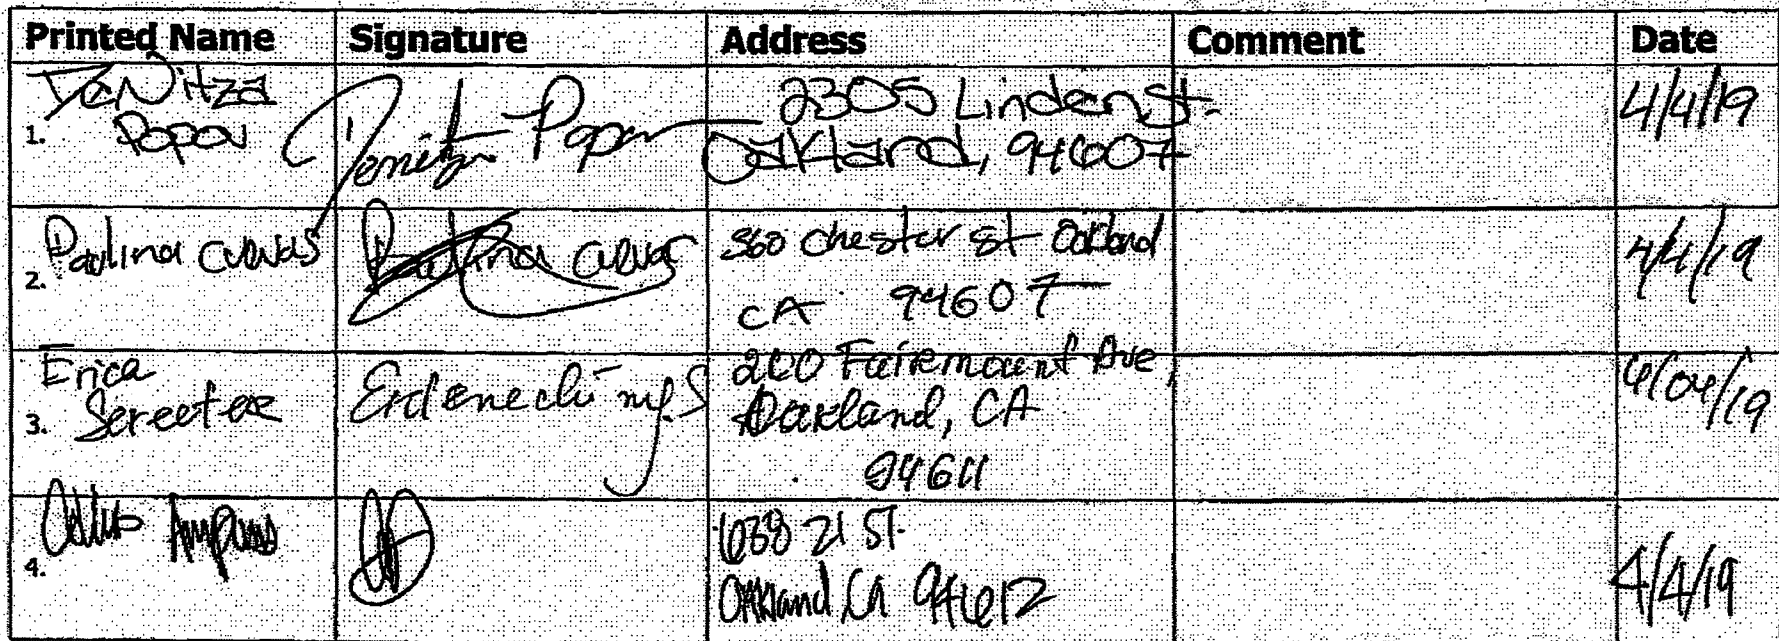 Printed Name Signature Address Comment Date
1. DeNitza
Popov
Denitza Popov
2305 Linden St.
Oakland, 94607
4/4/19
2. Paulina cuevas
Paulina cuevas
360 chester st Oakland
CA 94607
4/4/19
3. Erica
Sereeter
200 Fairemount Ave
Oakland, CA
94611
4/04/19
4.
638 21 ST.
Oakland, CA 94612
4/4/19